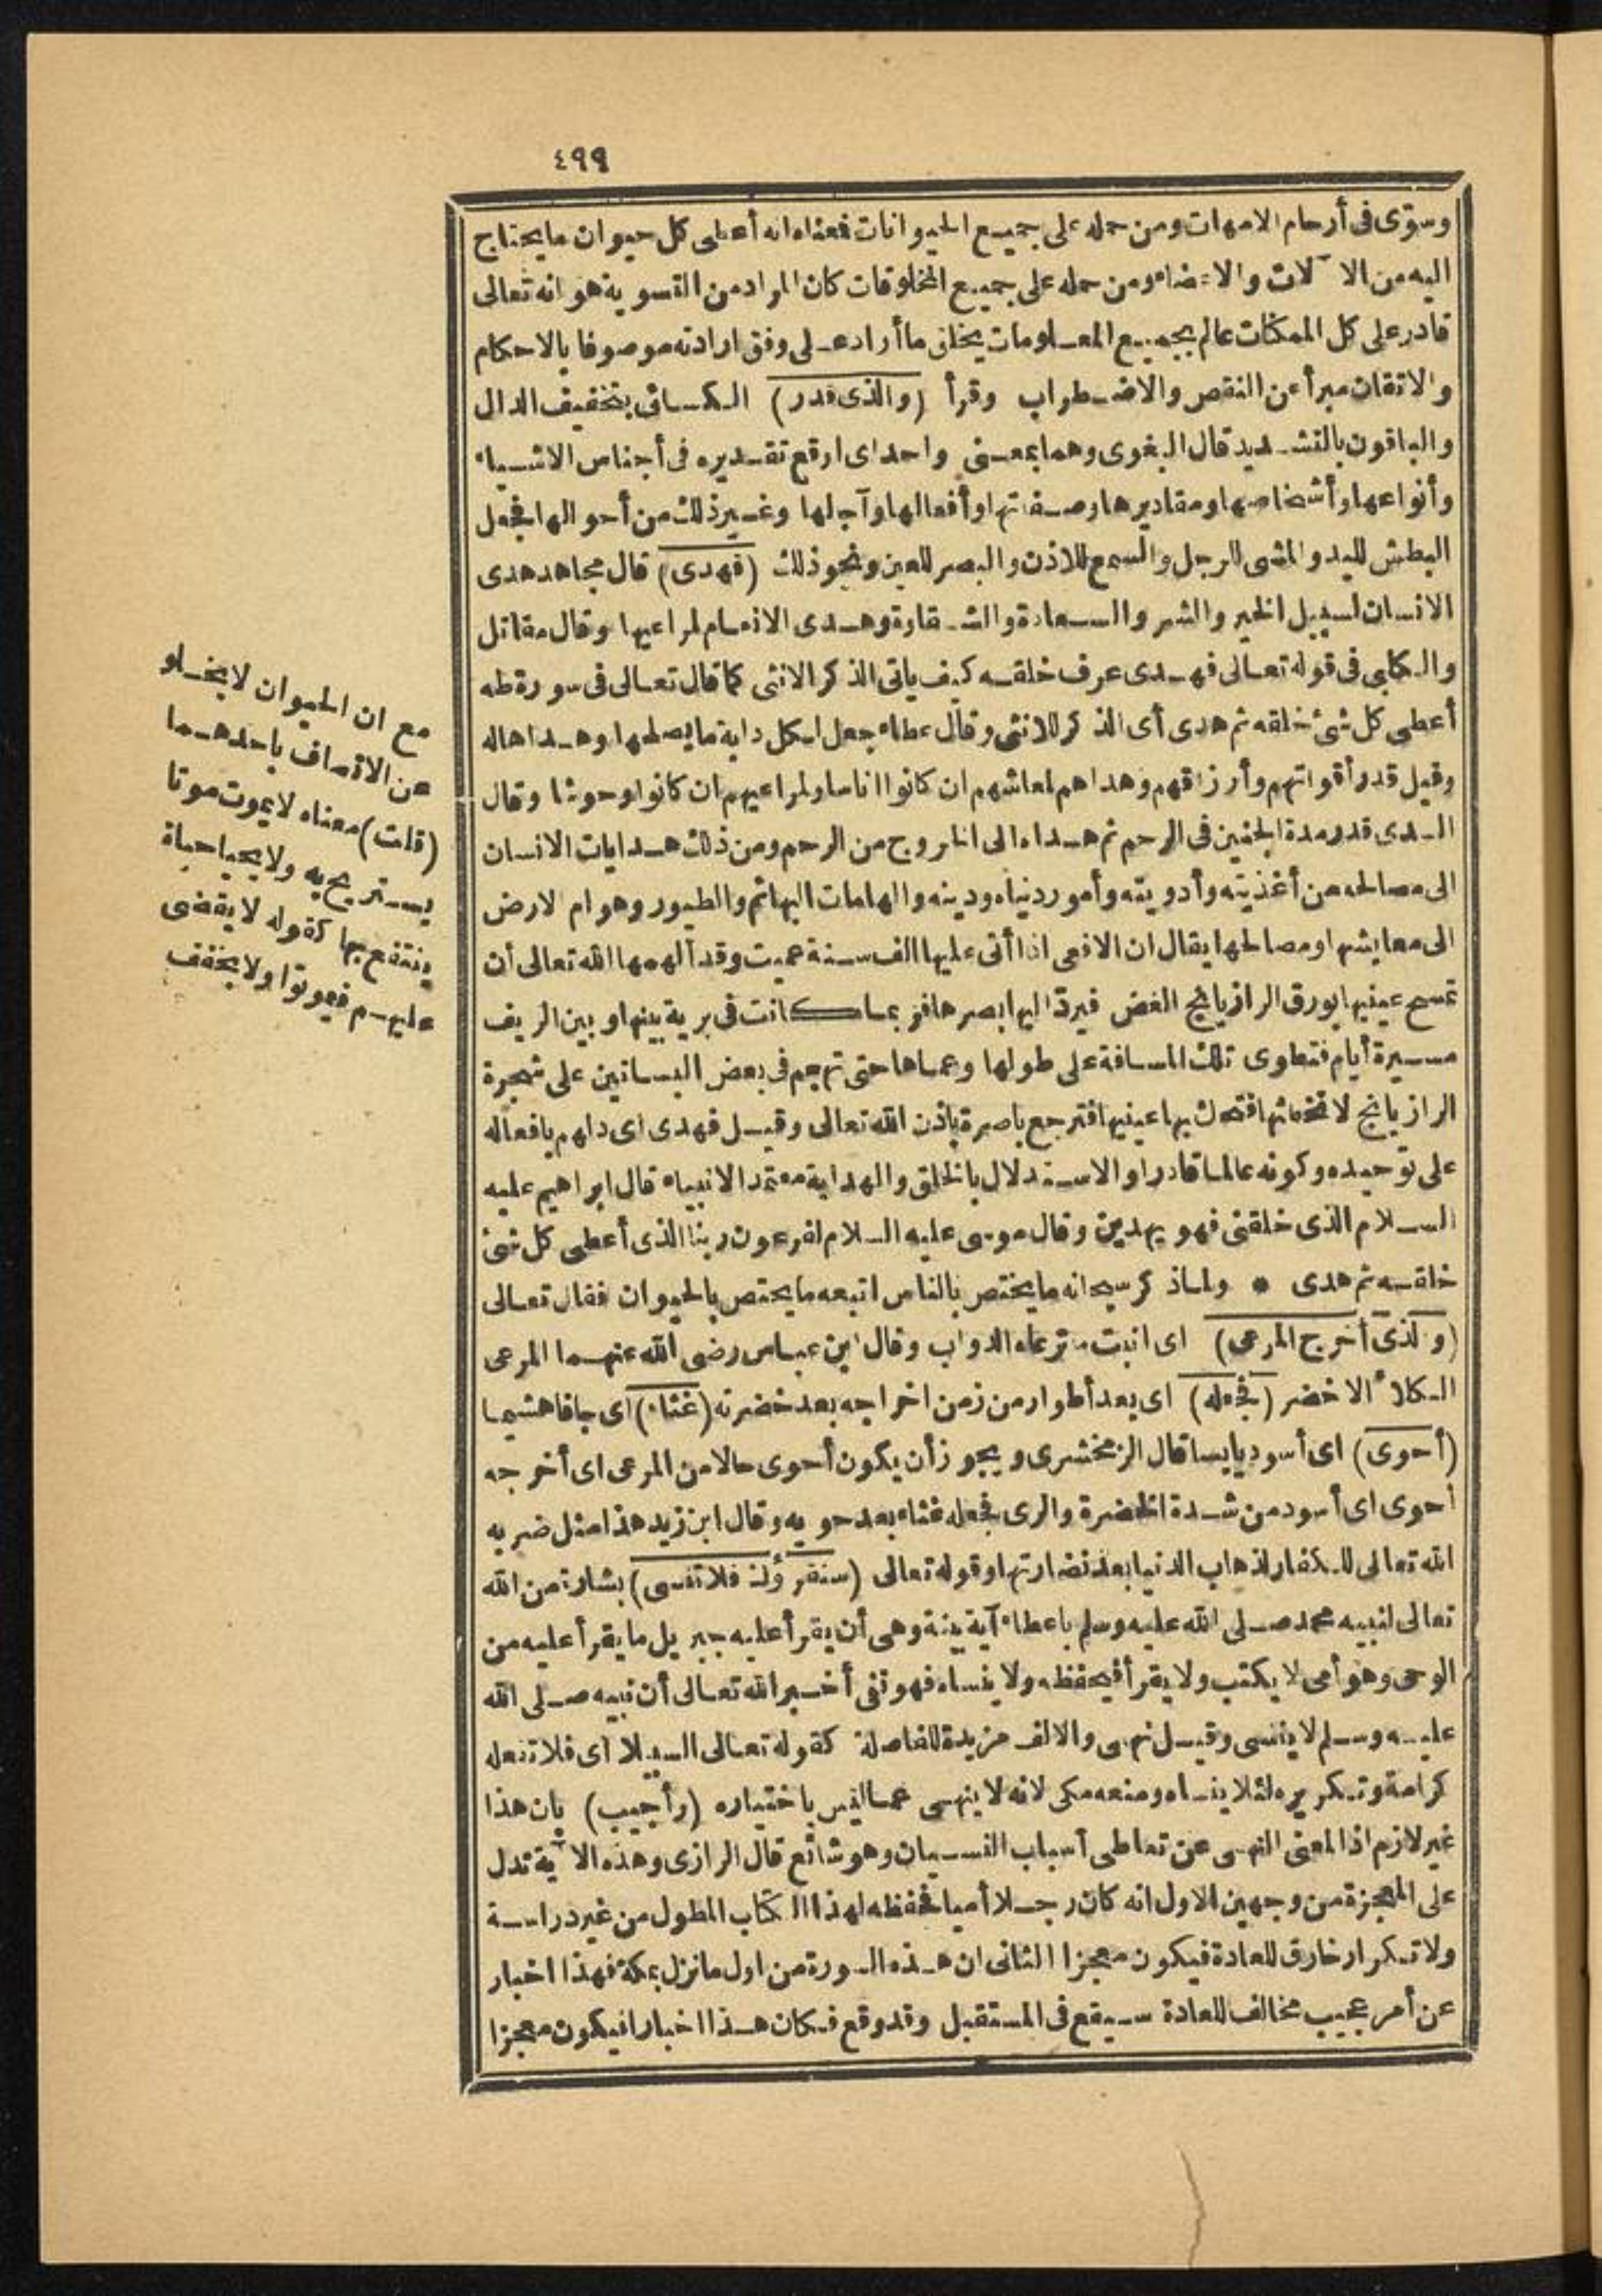 ٤٩٩
وسوّى فى أرحام الامهات ومن حمله على جميع الحيوانات فمعناه انه أعطى كل حيوان ما يحتاج
اليه من الآلات والاعضاء ومن حمله على جميع المخلوقات كان المراد من التسوية هو انه تعالى
قادر على كل الممكنات عالم بجميع المعلومات يخلق ما أراد على وفق ارادته موصوفا بالاحكام
والاتقان مبرأ عن النقص والاضطراب وقرأ (والذى قدر) الكسائى بتخفيف الدال
والباقون بالتشديد قال البغوى وهما بمعنى واحد اى اوقع تقديره فى أجناس الاشياء
وأنواعها وأشخاصها ومقاديرها وصفاتها وأفعالها وآجالها وغير ذلك من أحوالها فجعل
البطش لليد والمشى للرجل والسمع للاذن والبصر للعين ونحو ذلك (فهدى) قال مجاهد هدى
الانسان لسبيل الخير والشر والسعادة والشقاوة وهدى الانعام لمراعيها وقال مقاتل
والكلبى فى قوله تعالى فهدى عرف خلقه كيف ياتى الذكر الانثى كما قال تعالى فى سورة طه
أعطى كل شئ خلقه ثم هدى أى الذكر للانثى وقال عطاء جعل لكل دابة ما يصلحها وهداها له
وقيل قدر أقواتهم وأرزاقهم وهداهم لمعاشهم ان كانوا اناسا ولمراعيهم ان كانوا وحوشا وقال
السدى قدر مدة الجنين فى الرحم ثم هداه الى الخروج من الرحم ومن ذلك هدايات الانسان
الى مصالحه من أغذيته وأدويته وأمور دنياه ودينه والهامات البهائم والطيور وهوام لارض
الى معايشها ومصالحها يقال ان الافعى اذا أتى عليها الف سنة عميت وقد ألهمها الله تعالى أن
تمسح عينيها بورق الرازيانج الغض فيردّ اليها بصرها فربما كانت فى برية بينها وبين الريف
مسيرة أيام فتطوى تلك المسافة على طولها وعماها حتى تهجم فى بعض البساتين على شجرة
الرازيانج لا تخطئها فتحك بها عينيها فترجع باصرة باذن الله تعالى وقيل فهدى اى دلهم بافعاله
على توحيده وكونه عالما قادرا والاستدلال بالخلق والهداية معتمد الانبياء قال ابراهيم عليه
السلام الذى خلقنى فهو يهدين وقال موسى عليه السلام لفرعون ربنا الذى أعطى كل شئ
خلقه ثم هدى * ولما ذكر سبحانه ما يختص بالناس اتبعه ما يختص بالحيوان فقال تعالى
(و لذى أخرج المرعى) اى انبت ما ترعاه الدواب وقال ابن عباس رضى الله عنهما المرعى
الكلأ الاخضر (فجعله) اى بعد أطوار من زمن اخراجه بعد خضرته (غثاء) اى جافا هشيما
(أحوى) اى أسود يابسا قال الزمخشرى ويجوز أن يكون أحوى حالا من المرعى اى أخرجه
احوى اى أسود من شدة الخضرة والرى فجعله غثاء بعد حويه وقال ابن زيد هذا مثل ضربه
الله تعالى للكفار لذهاب الدنيا بعد نضارتها وقوله تعالى (سنقرؤك فلا تنسى) بشارة من الله
تعالى لنبيه محمد صلى الله عليه وسلم باعطاء آية بينة وهى أن يقرأ عليه جبريل ما يقرأ عليه من
الوحى وهو أمى لا يكتب ولا يقرأ فيحفظه ولا ينساه فهو نفى أخبر الله تعالى أن نبيه صلى الله
عليه وسلم لا ينسى وقيل نهى والالف مزيدة للفاصلة كقوله تعالى السبيلا اى فلا تنعله
كرامة وتكريره لئلا ينساه ومنعه مكى لانه لا ينهى عما ليس باختياره (وأجيب) بان هذا
غير لازم اذ المعنى النهى عن تعاطى أسباب النسيان وهو شائع قال الرازى وهذه الآية تدل
على المعجزة من وجهين الاول انه كان رجلا أميا فحفظه لهذا الكتاب المطول من غير دراسة
ولا تكرار خارق للعادة فيكون معجزا الثانى ان هذه السورة من اول ما نزل بمكة فهذا اخبار
عن أمر عجيب مخالف للعادة سيقع فى المستقبل وقد وقع فكان هذا اخبارا فيكون معجزا
مع ان الحيوان لا يخلو
عن الاتصاف باحدهما
(قلت) معناه لا يموت موتا
يستريح به ولا يحيا حياة
ينتفع بها كقوله لا يقضى
عليهم فيموتوا ولا يخفف